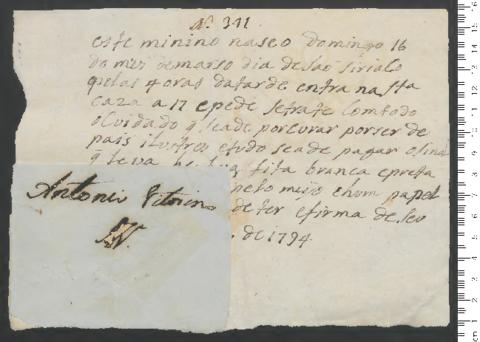 N. 341
este minino naseo domingo 16
do mes demarso dia de sao siriaco
pelas 4 oras datarde entra nasta
caza a 17 epede setrate comtodo
oCuidado q seade porcurar porser de
pais ilustres etudo seade pagar osinal
q leva he hua fita branca epreta
pelo mejo ehum papel
de ter efirma de seu
. de 1794
Antonio Vitorino